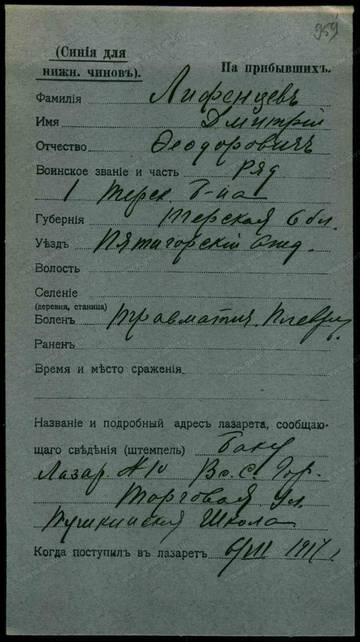 959
(Синія для
нижн. чиновъ).
На прибывшихъ.
Фамилія Лифенцевъ
Имя Дмитрій
Отчество Ѳеодоровичъ
Воинское званіе и часть Ряд
1 Терск б-на
Губернія Терская обл.
Уѣздъ Пятигорскій отд.
Волость
Селеніе
(деревня, станица)
Боленъ травматич. плеврит
Раненъ
Время и мѣсто сраженія
Названіе и подробный адресъ лазарета, сообщаю-
щаго свѣдѣнія (штемпель) Баку
Лазар. №10 Вс. С. Гор.
Торговая ул.
Пушкинская Школа
Когда поступилъ въ лазаретъ 1917 г